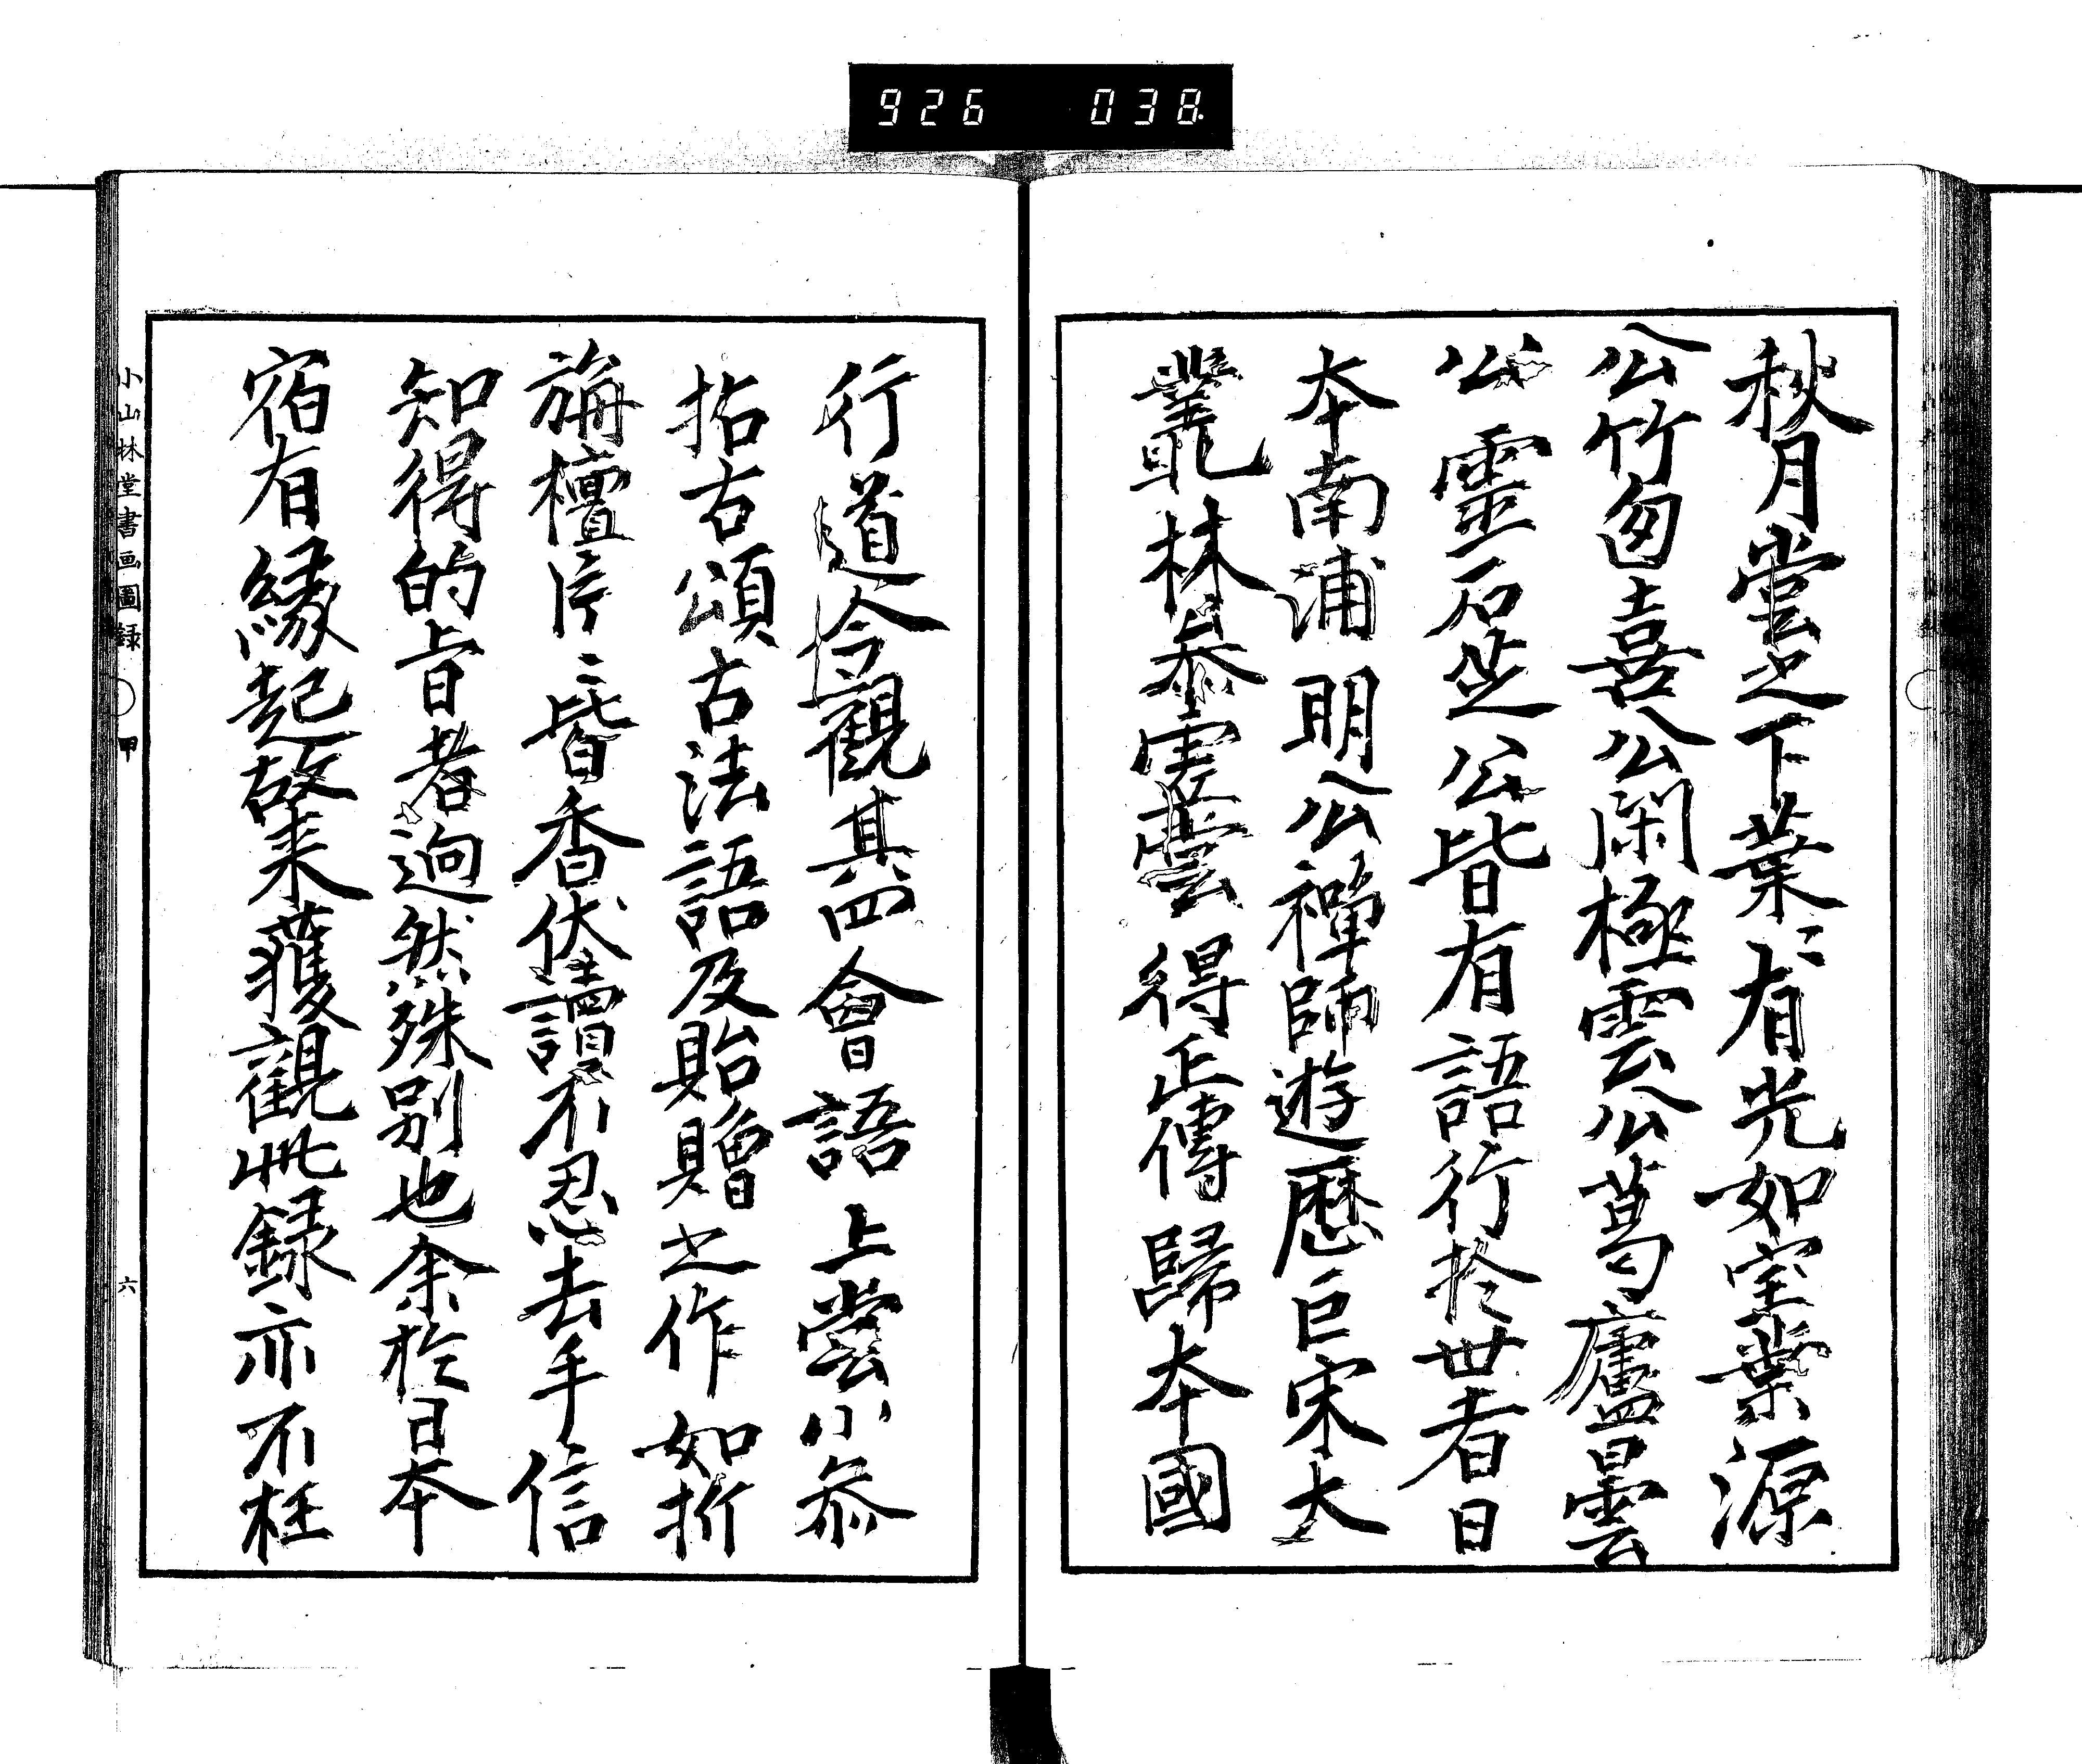 926 038
秋月堂之下葉〻有光如宝葉源
公竹匃喜公閑極雲公葛廬曇
公霊石芝公皆有語行於世者日
本南浦明公禅師遊歴巨宋大
叢林参虚雲得正傳歸本國
行道今觀其四會語上堂小参
拈古頌古法語及貽贈之作如折
旃檀片〻皆香伏讀不忍去手信
知得的旨者逈然殊別也余於日本
宿有縁起故来獲觀此録亦不枉
小山林堂書画圖録 甲 六